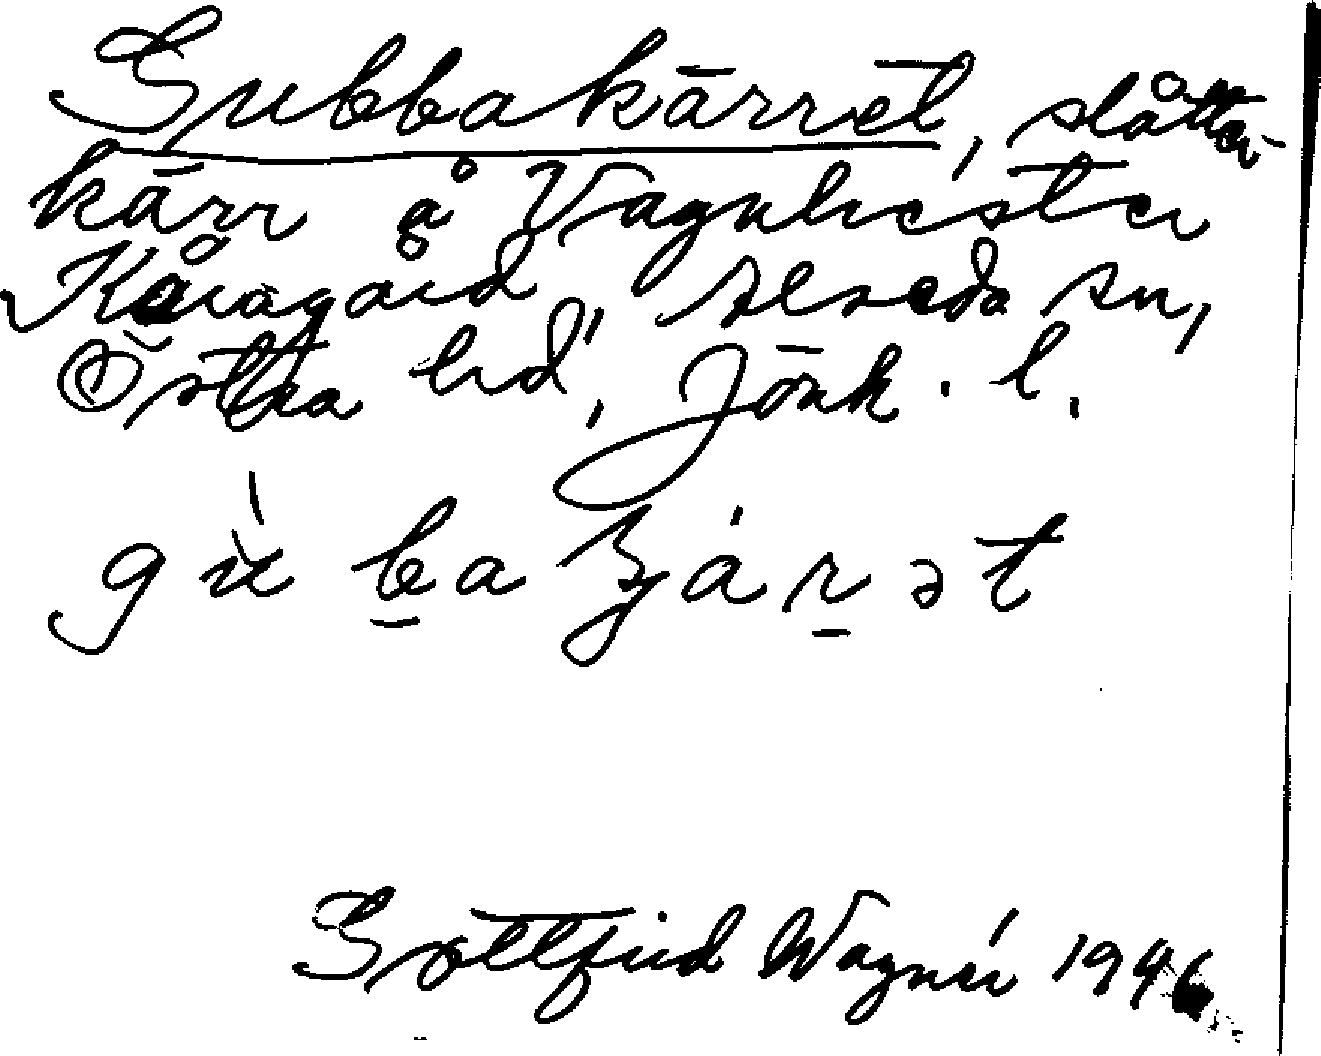 Gubbakärret, slåtter-
kärr å Vagnhester
Kåragård, Alseda sn,
Östra hd, Jönk. l.
gùba ʒárət
Gottfrid Wagnér 1946